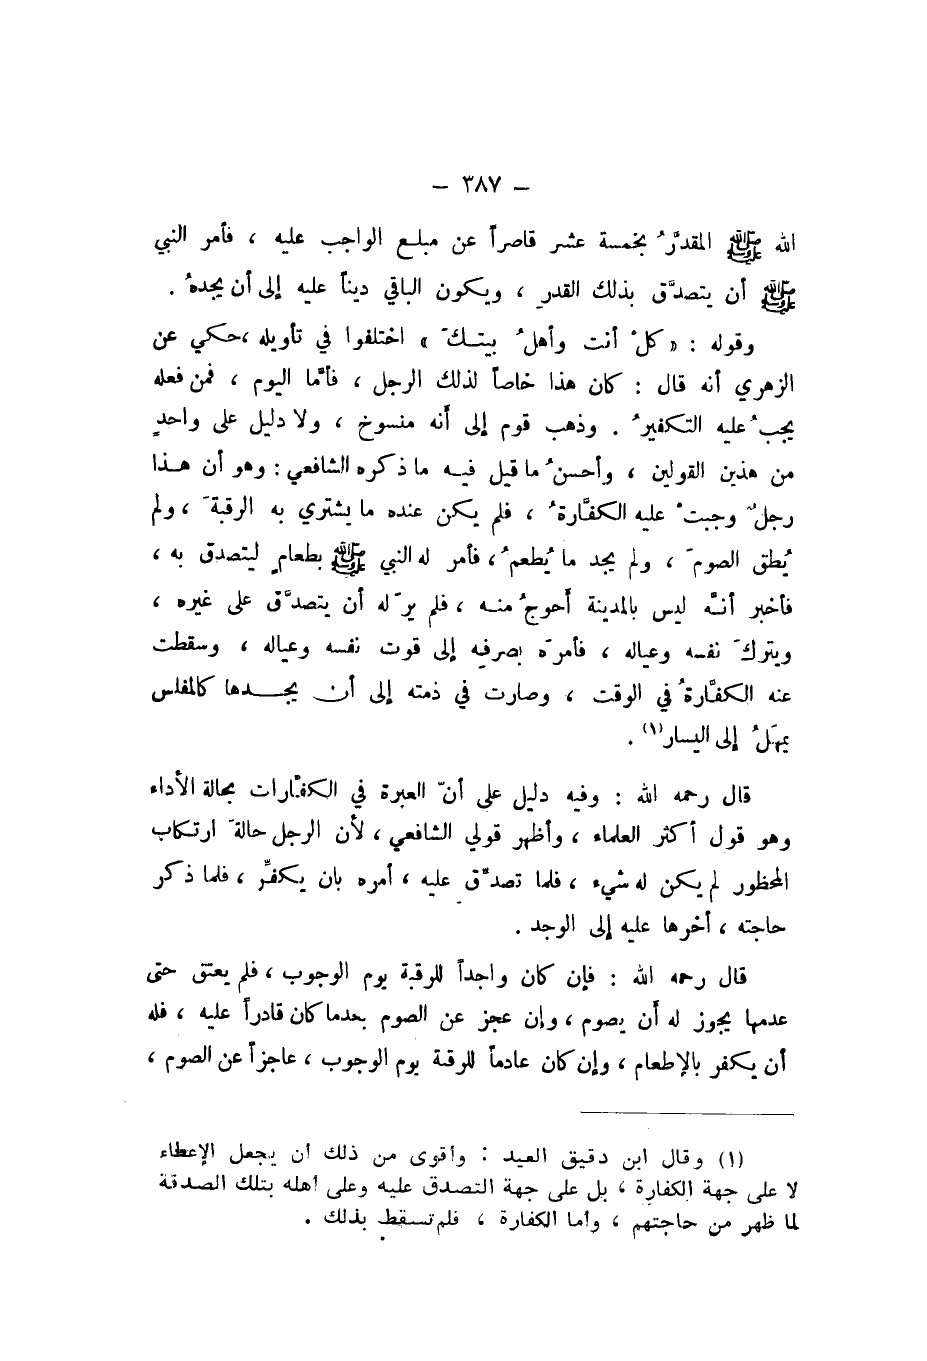 – ٣٨٧ –
الله ﷺ المقدَّرُ بخمسة عشر قاصراً عن مبلغ الواجب عليه ، فأمر النبي
ﷺ أن يتصدَّق بذلك القدر ، ويكون الباقي ديناً عليه إلى أن يجدهُ .
وقوله : « كلْ أنت وأهلُ بيتكَ » اختلفوا في تأويله ،حكي عن
الزهري أنه قال : كان هذا خاصاً لذلك الرجل ، فأمَّا اليوم ، فمن فعله
يجبُ عليه التكفيرُ . وذهب قوم إلى أنه منسوخ ، ولا دليل على واحدٍ
من هذين القولين ، وأحسنُ ما قيل فيه ما ذكره الشافعي : وهو أن هذا
رجلٌ وجبتْ عليه الكفَّارةُ ، فلم يكن عنده ما يشتري به الرقبةَ ، ولم
يُطق الصومَ ، ولم يجد ما يُطعمُ ، فأمر له النبي ﷺ بطعامٍ ليتصدق به ،
فأخبر أنَّه ليس بالمدينة أحوجُ منه ، فلم يرَ له أن يتصدَّق على غيره ،
ويتركَ نفسه وعياله ، فأمرَه بصرفه إلى قوت نفسه وعياله ، وسقطت
عنه الكفَّارةُ في الوقت ، وصارت في ذمته إلى أن يجدها كالمفلس
يمهَلُ إلى اليسار(١) .
قال رحمه الله : وفيه دليل على أنّ العبرة في الكفَّارات بحالة الأداء
وهو قول أكثر العلماء ، وأظهر قولي الشافعي ، لأن الرجل حالةَ ارتكاب
المحظور لم يكن له شيء ، فلما تصدّق عليه ، أمره بان يكفِّر ، فلما ذكر
حاجته ، أخرها عليه إلى الوجد .
قال رحمه الله : فإن كان واجداً للرقبة يوم الوجوب ، فلم يعتق حتى
عدمها يجوز له أن يصوم ، وإن عجز عن الصوم بعدما كان قادراً عليه ، فله
أن يكفر بالإطعام ، وإن كان عادماً للرقبة يوم الوجوب ، عاجزاً عن الصوم ،
(١) وقال ابن دقيق العيد : وأقوى من ذلك أن يجعل الإعطاء
لا على جهة الكفارة ، بل على جهة التصدق عليه وعلى أهله بتلك الصدقة
لما ظهر من حاجتهم ، وأما الكفارة ، فلم تسقط بذلك .